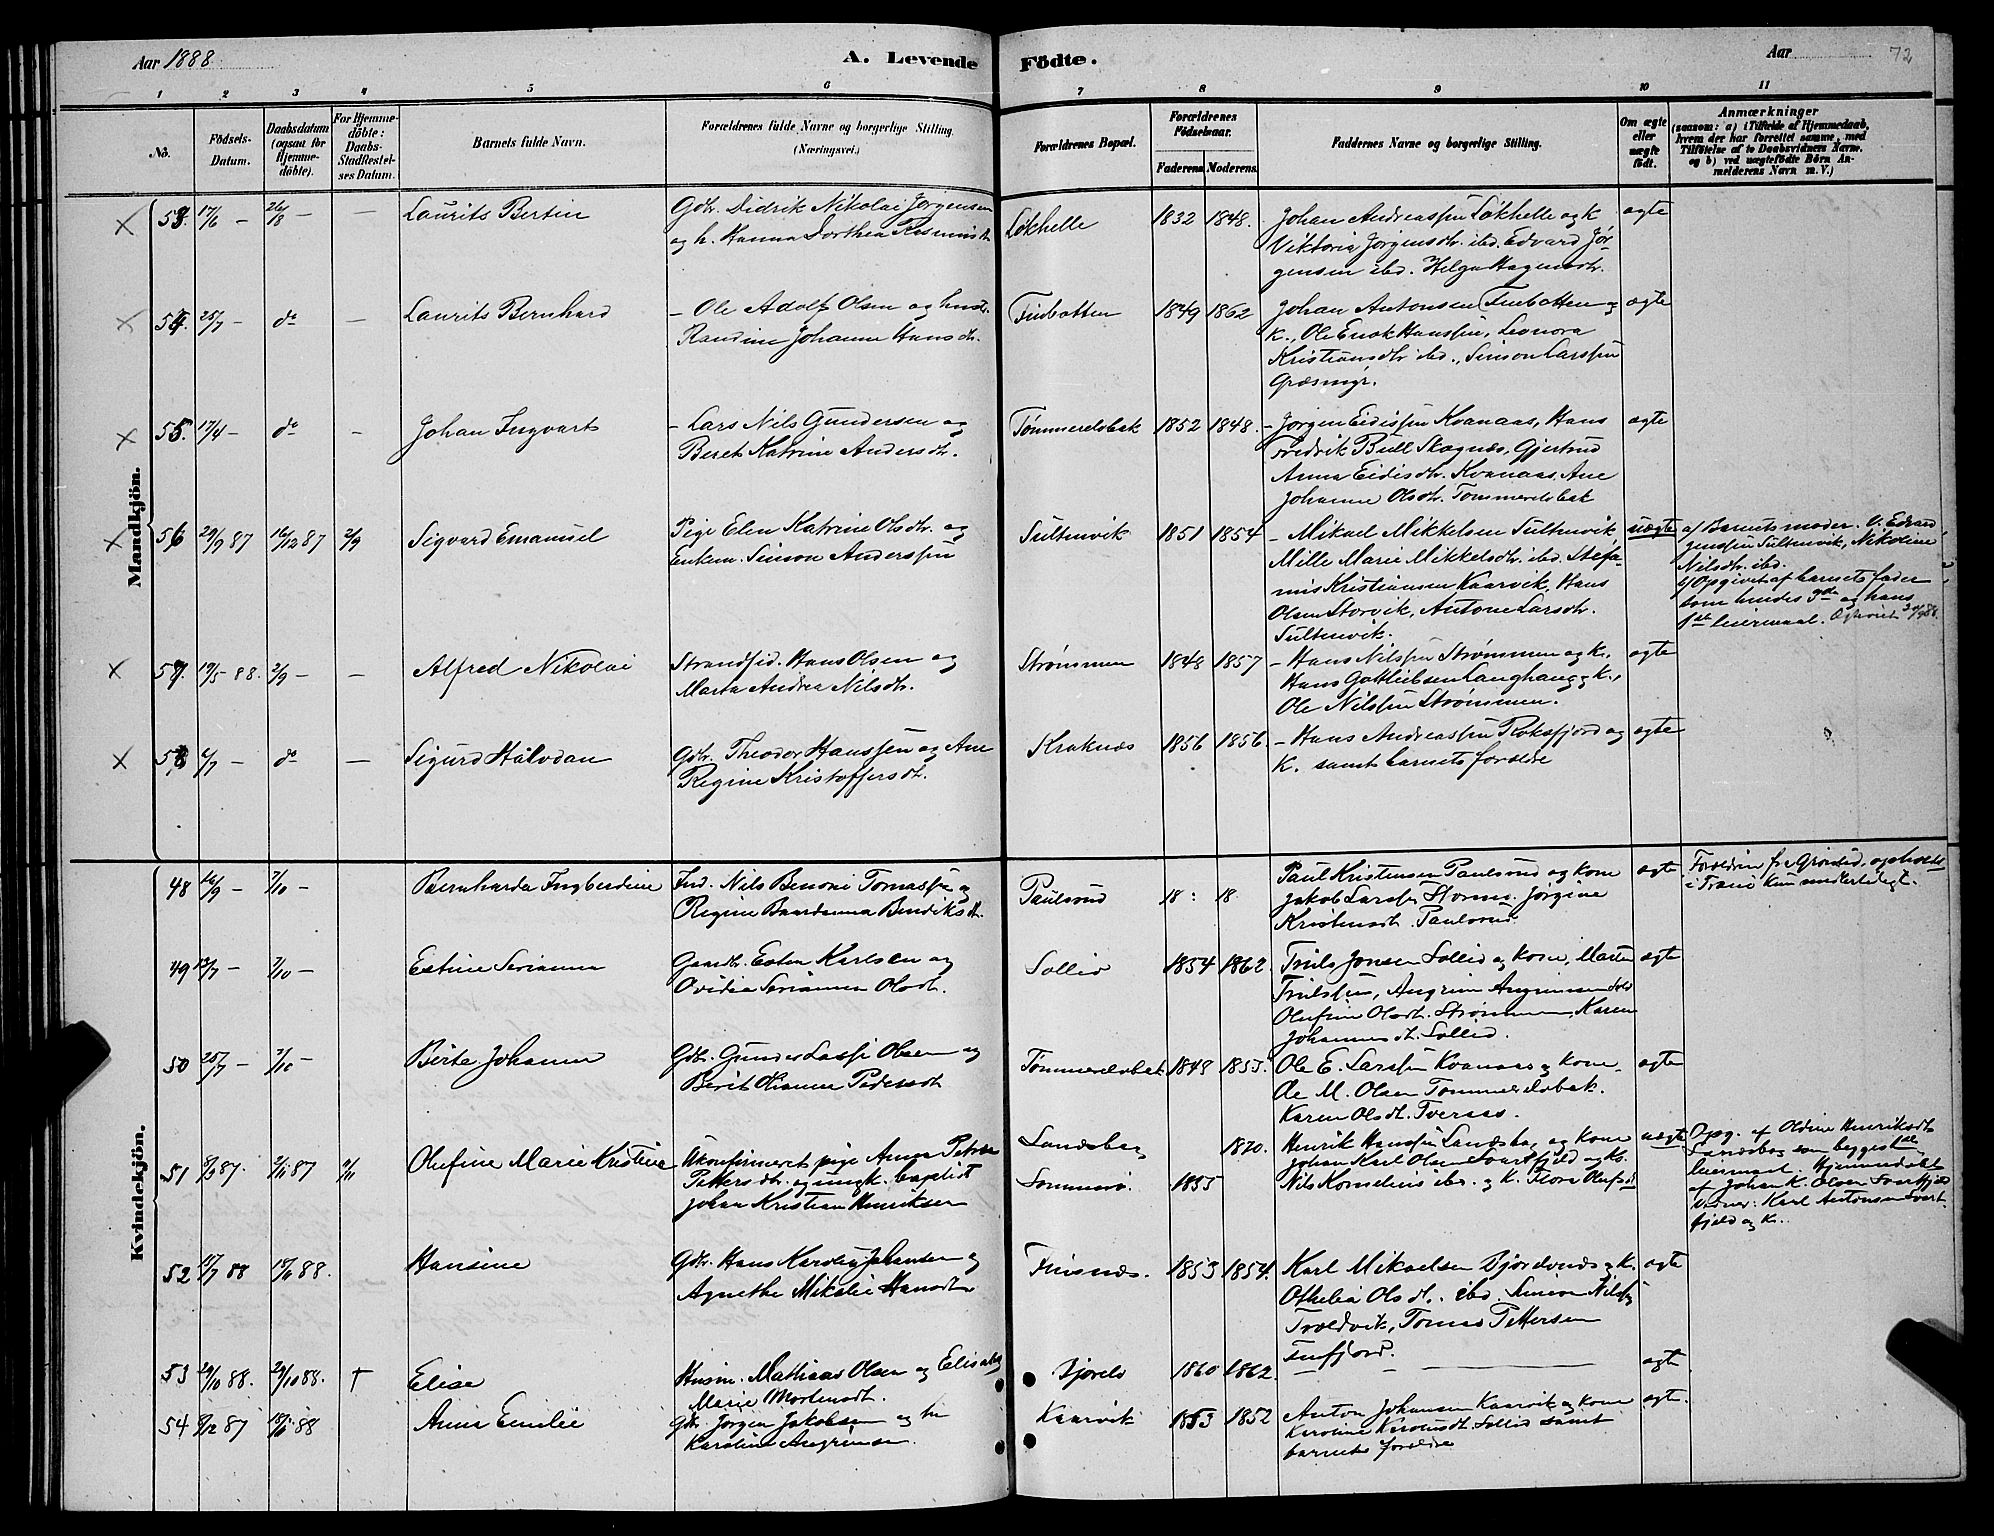 Aar 1888
A. Levende
Födte.
Aar
72
1 2 3 4 5 6 7 8 9 10 11
No.
Födsels-
Datum.
Daabsdatum
(ogsaa for
Hjemme-
döbte).
For Hjemme-
döbte:
Daabs-
Stadfæstel-
ses Datum.
Barnets fulde Navn.
Forældrenes fulde Navne og borgerlige Stilling.
(Næringsvei.)
Forældrenes Bopæl.
Forældrenes
Födselsaar.
Faderens Moderens
Faddernes Navne og borgerlige Stilling.
Om ægte
eller
uægte
födt.
Anmærkninger
(saasom: a) i Tilfælde af Hjemmedaab,
hvem der har forrettet samme, med
Tilföielse af to Daabsvidners Navne.
og b) ved uægtefödte Börn An-
melderens Navn m. V.)
Mandkjön.
53. 17/6 - 26/8 - - Laurits Bertin
Gdbr. Didrik Nikolai Jørgensen
og h. Hanna Dorthea
Løkhelle 1832 1848.
Johan Andreassen Løkhelle og k
Viktoria Jørgensdtr. ibd. Edvard Jør-
gensen ibd. Helga Hagensdtr.
ægte
54. 25/7 - do - Laurits Bernhard
- Ole Adolf Olsen og hustr.
Randine Johanne Hansdtr.
Finbotten 1849 1862
Johan Antonsen Finbotten og
k., Ole Enok Hanssen, Leonora
Kristiansdtr ibd., Simon Larssen
Græsmyr.
ægte
55. 17/4 - do - Johan Ingvart
- Lars Nils Gundersen og
Beret Katrine Andersdtr.
Tømmerelvbak 1852 1848.
- Jørgen Eidissen Kvanaas, Hans
Fredrik Bull Skognæs, Gjertrud
Anna Eidisdtr. Kvanaas, Ane
Johanne Olsdtr. Tømmerelvbak
ægte
56 29/9 87 16/12 87 2/9 Sigvard Emanuel
Pige Elen Katrine Olsdtr. og
Enkem. Simon Anderssen
Sultenvik 1851 1854
- Mikael Mikkelsen Sultenvik
Mille Marie Mikkelsdtr. ibd. Stefa-
nus Kristiansen Kaarvik, Hans
Olsen Storvik, Antone Larsdtr.
Sultenvik.
uægte
af Barnets moder. V: Edvard
Jenssen Sultenvik, Nikoline
Nilsdtr. ibd.
Opgivet af barnets fader
som hendes 3die og hans
1ste leiermaal.
57. 19/5 - 88. 2/9 - - Alfred Nikolai
Strandsid. Hans Olsen og
Marta Andrea Nilsdtr.
Strømmen 1848 1857
- Hans Nilssen Strømmen og k.
Hans Gottliebsen Langhaug og k.,
Ole Nilssen Strømmen.
ægte
58 4/7 - do - Sigurd Halvdan
Gdbr. Theodor Hanssen og Ane
Regine Kristoffersdtr.
Kraknæs 1856 1856.
- Hans Andreassen Roksfjord og
K. samt barnets forældre
ægte
Kvindekjön.
48 16/9 - 7/10 - Bernharda Ingberdine
Ind. Nils Benoni Tomassen og
Regine Baardanna Bendiksdtr.
Paulsrud 18 : 18
Paul Kristensen Paulsrud og kone
Jakob Larssen Jørgine
Kristensdtr. Paulsrud
ægte
i Tranø kun midlertidigt.
49 13/7 - 7/10 - Estine Serianna
Gaardbr. Esten Karlsen og
Ovidia Serianna Olsdtr.
Sollid 1854 1862.
Truls Jonsen Sollid og kone, Marten
Trulssen, Angrim Angrimsen ibid
Olufine Olsdtr. Strømmen, Karen
Johannesdtr. Sollid.
ægte
50 25/7 - 7/10 - Birte Johanna
Gdbr. Gunder Olsen og
Berit Pedersdtr
Tømmerelvbak 1848 1853.
Ole E. Larssen Kvanaas og kone
Ole M. Olsen Tømmerelvbak.
Karen Olsdtr. Tveraas.
ægte
51 87. 2/11 87 Olufine Marie Kristine
Ukonfirmeret pige Anna Petrea
Pettersdtr. og ungk. baptist
Johan Kristian Henriksen
Landsbog
Sommerø.
1855 1870.
Henrik Hanssen Landsbog og kone
Johan Karl Olsen Svartfjeld og k.
Nils Kornelius ibd. og k.
uægte
Opg. af Oldine Henriksdtr.
Landsbog som begges 1ste
leiermaal. Hjemmedøbt
af Johan K. Olsen Svartfjeld
Vidner: Karl Antonsen Svart-
fjeld og k.
52 11/7 88 88. Hansine
Gdbr. Hans Johansen og
Agnethe Mikalie Hansdtr
Finsnæs. 1853 1854.
Karl Mikaelsen og k.
Othelia Olsdtr. ibd. Simon Nilssen
Troldvik, Tomas Pettersen
Finfjord.
ægte
53 29/10 88. 29/10 88. † Elise
Husm. Mathias Olsen og Elisabeth
Marie Mortensdtr.
Gjøvik 1860 1862.
ægte
54 9/12 87 88 Anna Emilie
Gdbr. Jørgen Jakobsen og hu
Karoline Angrimsen.
Kaarvik 1853 1852
Anton Johansen Kaarvik og kone
Sollid samt
barnets forældre
ægte.